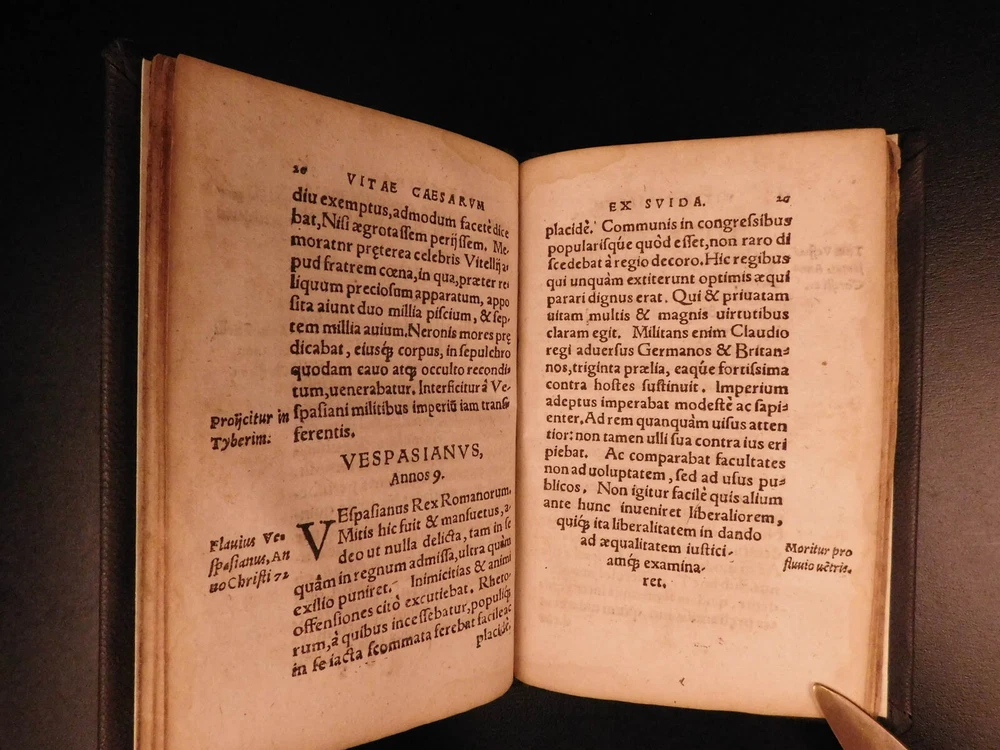 20
VITAE CAESARVM
diu exemptus, admodum facetè dice
bat, Nisi ægrotaſſem perijſſem. Me-
moratnr pręterea celebris Vitellij a-
pud fratrem cœna, in qua, præter reli
liquum preciosum apparatum, appo
ſita aiunt duo millia piſcium, & ſep-
tem millia auium. Neronis mores prę
dicabat, eiusq́; corpus, in ſepulchro
quodam cauo atq; occulto recondi
tum, uenerabatur. Interficitur à Ve-
Proijcitur in
Tyberim.
ſpasiani militibus imperiũ iam transſ
ferentis.
VESPASIANVS,
Annos 9.
Flauius Ve-
ſpasianus, An
no Christi 72
VEſpaſianus Rex Romanorum.
Mitis hic fuit & manſuetus, a-
deo ut nulla delicta, tam in ſe
quàm in regnum admiſſa, ultra quàm
exilio puniret. Inimicitias & animi
offenſiones citò excutiebat. Rheto-
rum, à quibus inceſſebatur, populiq́;
in ſe iacta ſcommata ferebat facile ac
placidè.
EX SVIDA.
placidè. Communis in congreſſibus
popularisq́ue quòd eſſet, non raro di
ſcedebat à regio decoro. Hic regibus
qui unquàm extiterunt optimis æqui
parari dignus erat. Qui & priuatam
uitam multis & magnis uirtutibus
claram egit. Militans enim Claudio
regi aduerſus Germanos & Britan-
nos, triginta prælia, eaq́ue fortiſſima
contra hoſtes ſuſtinuit. Imperium
adeptus imperabat modeſtè ac ſapi-
enter. Ad rem quanquàm uiſus atten
tior: non tamen ulli ſua contra ius eri
piebat. Ac comparabat facultates
non ad uoluptatem, ſed ad uſus pu-
blicos. Non igitur facilè quis alium
ante hunc inueniret liberaliorem,
quiq́; ita liberalitatem in dando
ad æqualitatem iuſtici-
amq́; examina-
ret.
Moritur pro
fluuio uẽtris.